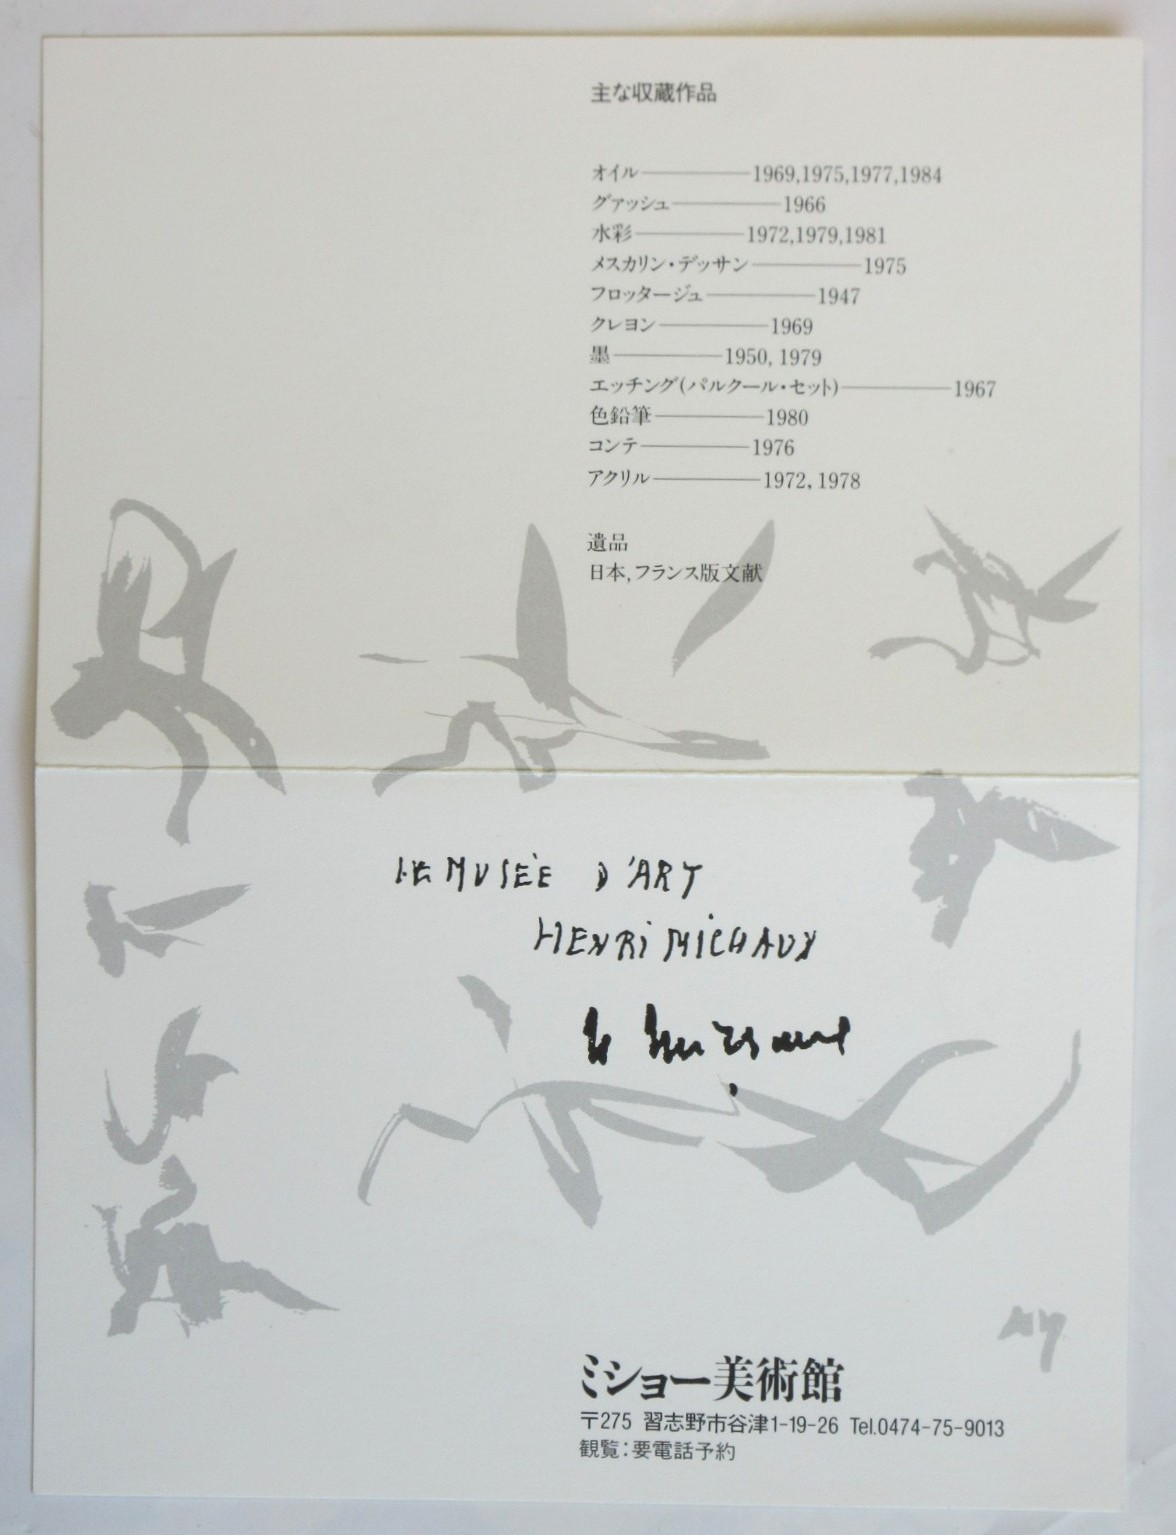 主な収蔵作品
オイル————1969,1975,1977,1984
グァッシュ————1966
水彩————1972,1979,1981
メスカリン・デッサン————1975
フロッタージュ————1947
クレヨン————1969
墨————1950, 1979
エッチング(パルクール・セット)————1967
色鉛筆————1980
コンテ————1976
アクリル————1972, 1978
遺品
日本,フランス版文献
LE MUSÉE D'ART
HENRI MICHAUX
ミショー美術館
〒275 習志野市谷津1-19-26 Tel.0474-75-9013
観覧:要電話予約